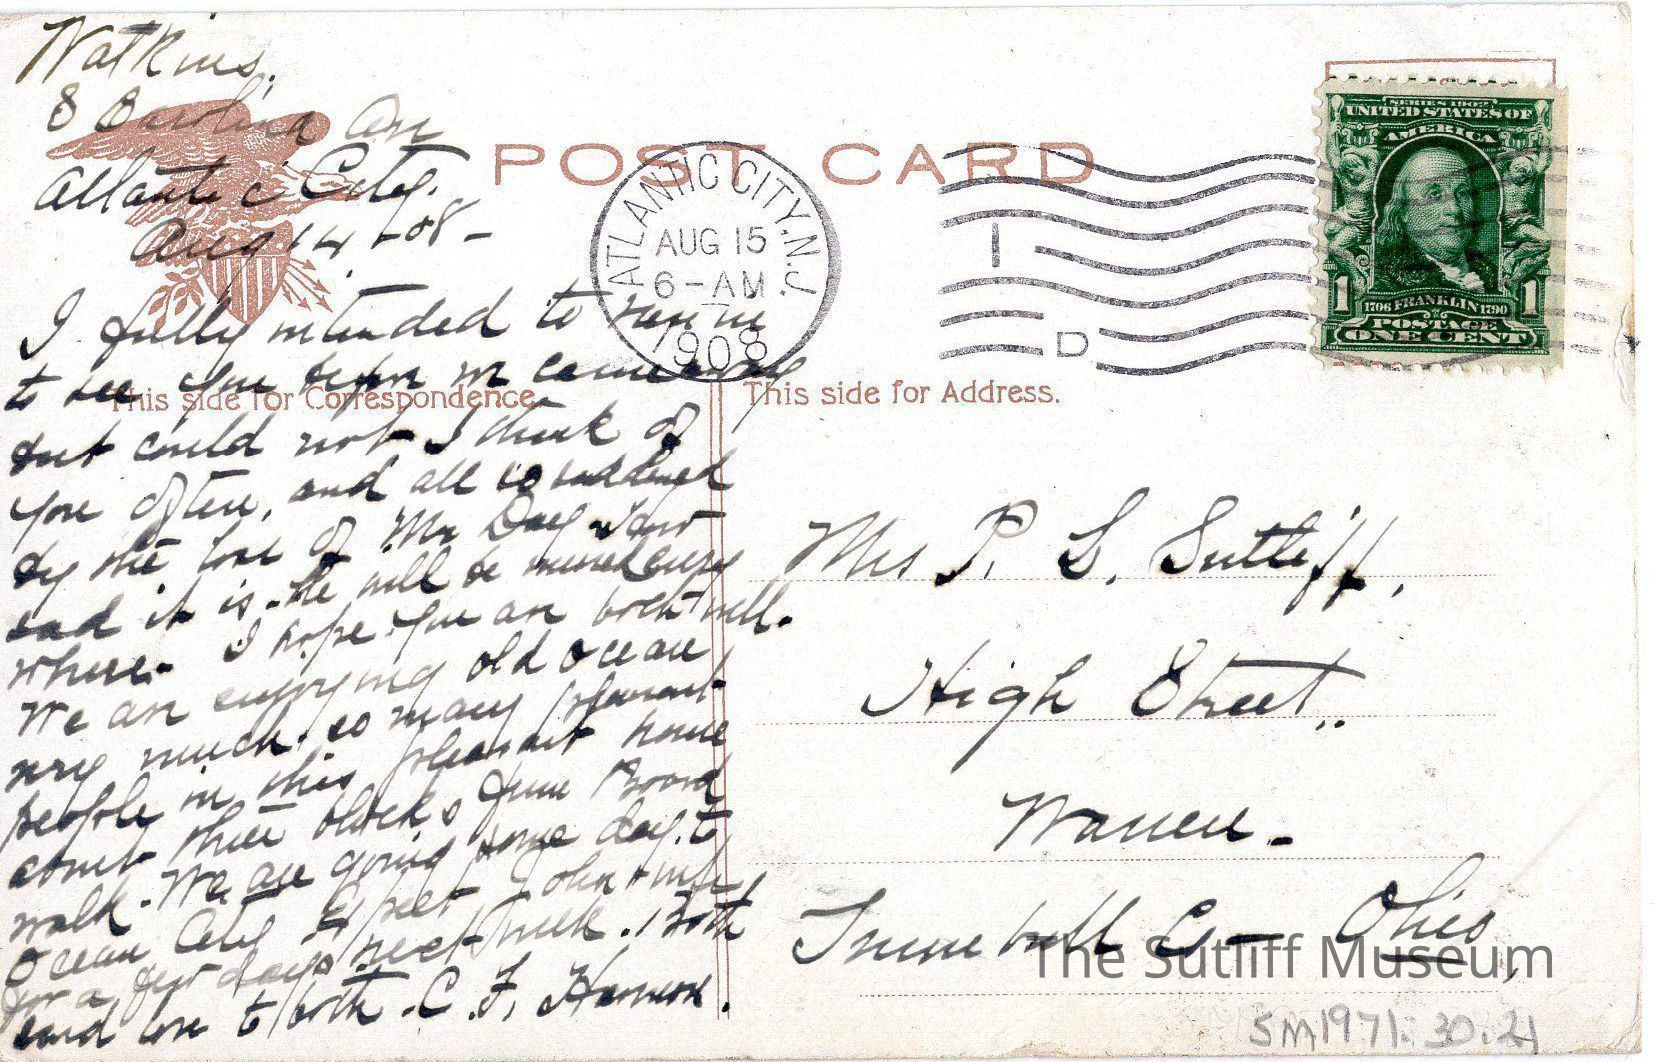 Watkins.
8 Carolina Ave
Atlantic City.
Aug 14 - 08 -
POST CARD
ATLANTIC CITY, N.J.
AUG 15
6-AM
1908
1
D
SERIES 1902
UNITED STATES OF
AMERICA
1 1706 FRANKLIN 1790 1
POSTAGE
ONE CENT
I fully intended to run in
to see you before we came away
This side for Correspondence.
This side for Address.
but could not I think of
you often, and all so saddened
by the loss of Mr Day how
sad it is. He will be missed every
where. I hope you are both well.
We are enjoying old ocean
very much. so many pleasant
people in this pleasant house
court three blocks from Board
walk. We are going some day to
Ocean City expect John + wife
for a few days next week. Both
send love to both. C. F. Harmon.
Mrs P. L. Sutliff,
High Street,
Warren -
Trumbull Co - Ohio,
The Sutliff Museum
SM1971.30.21